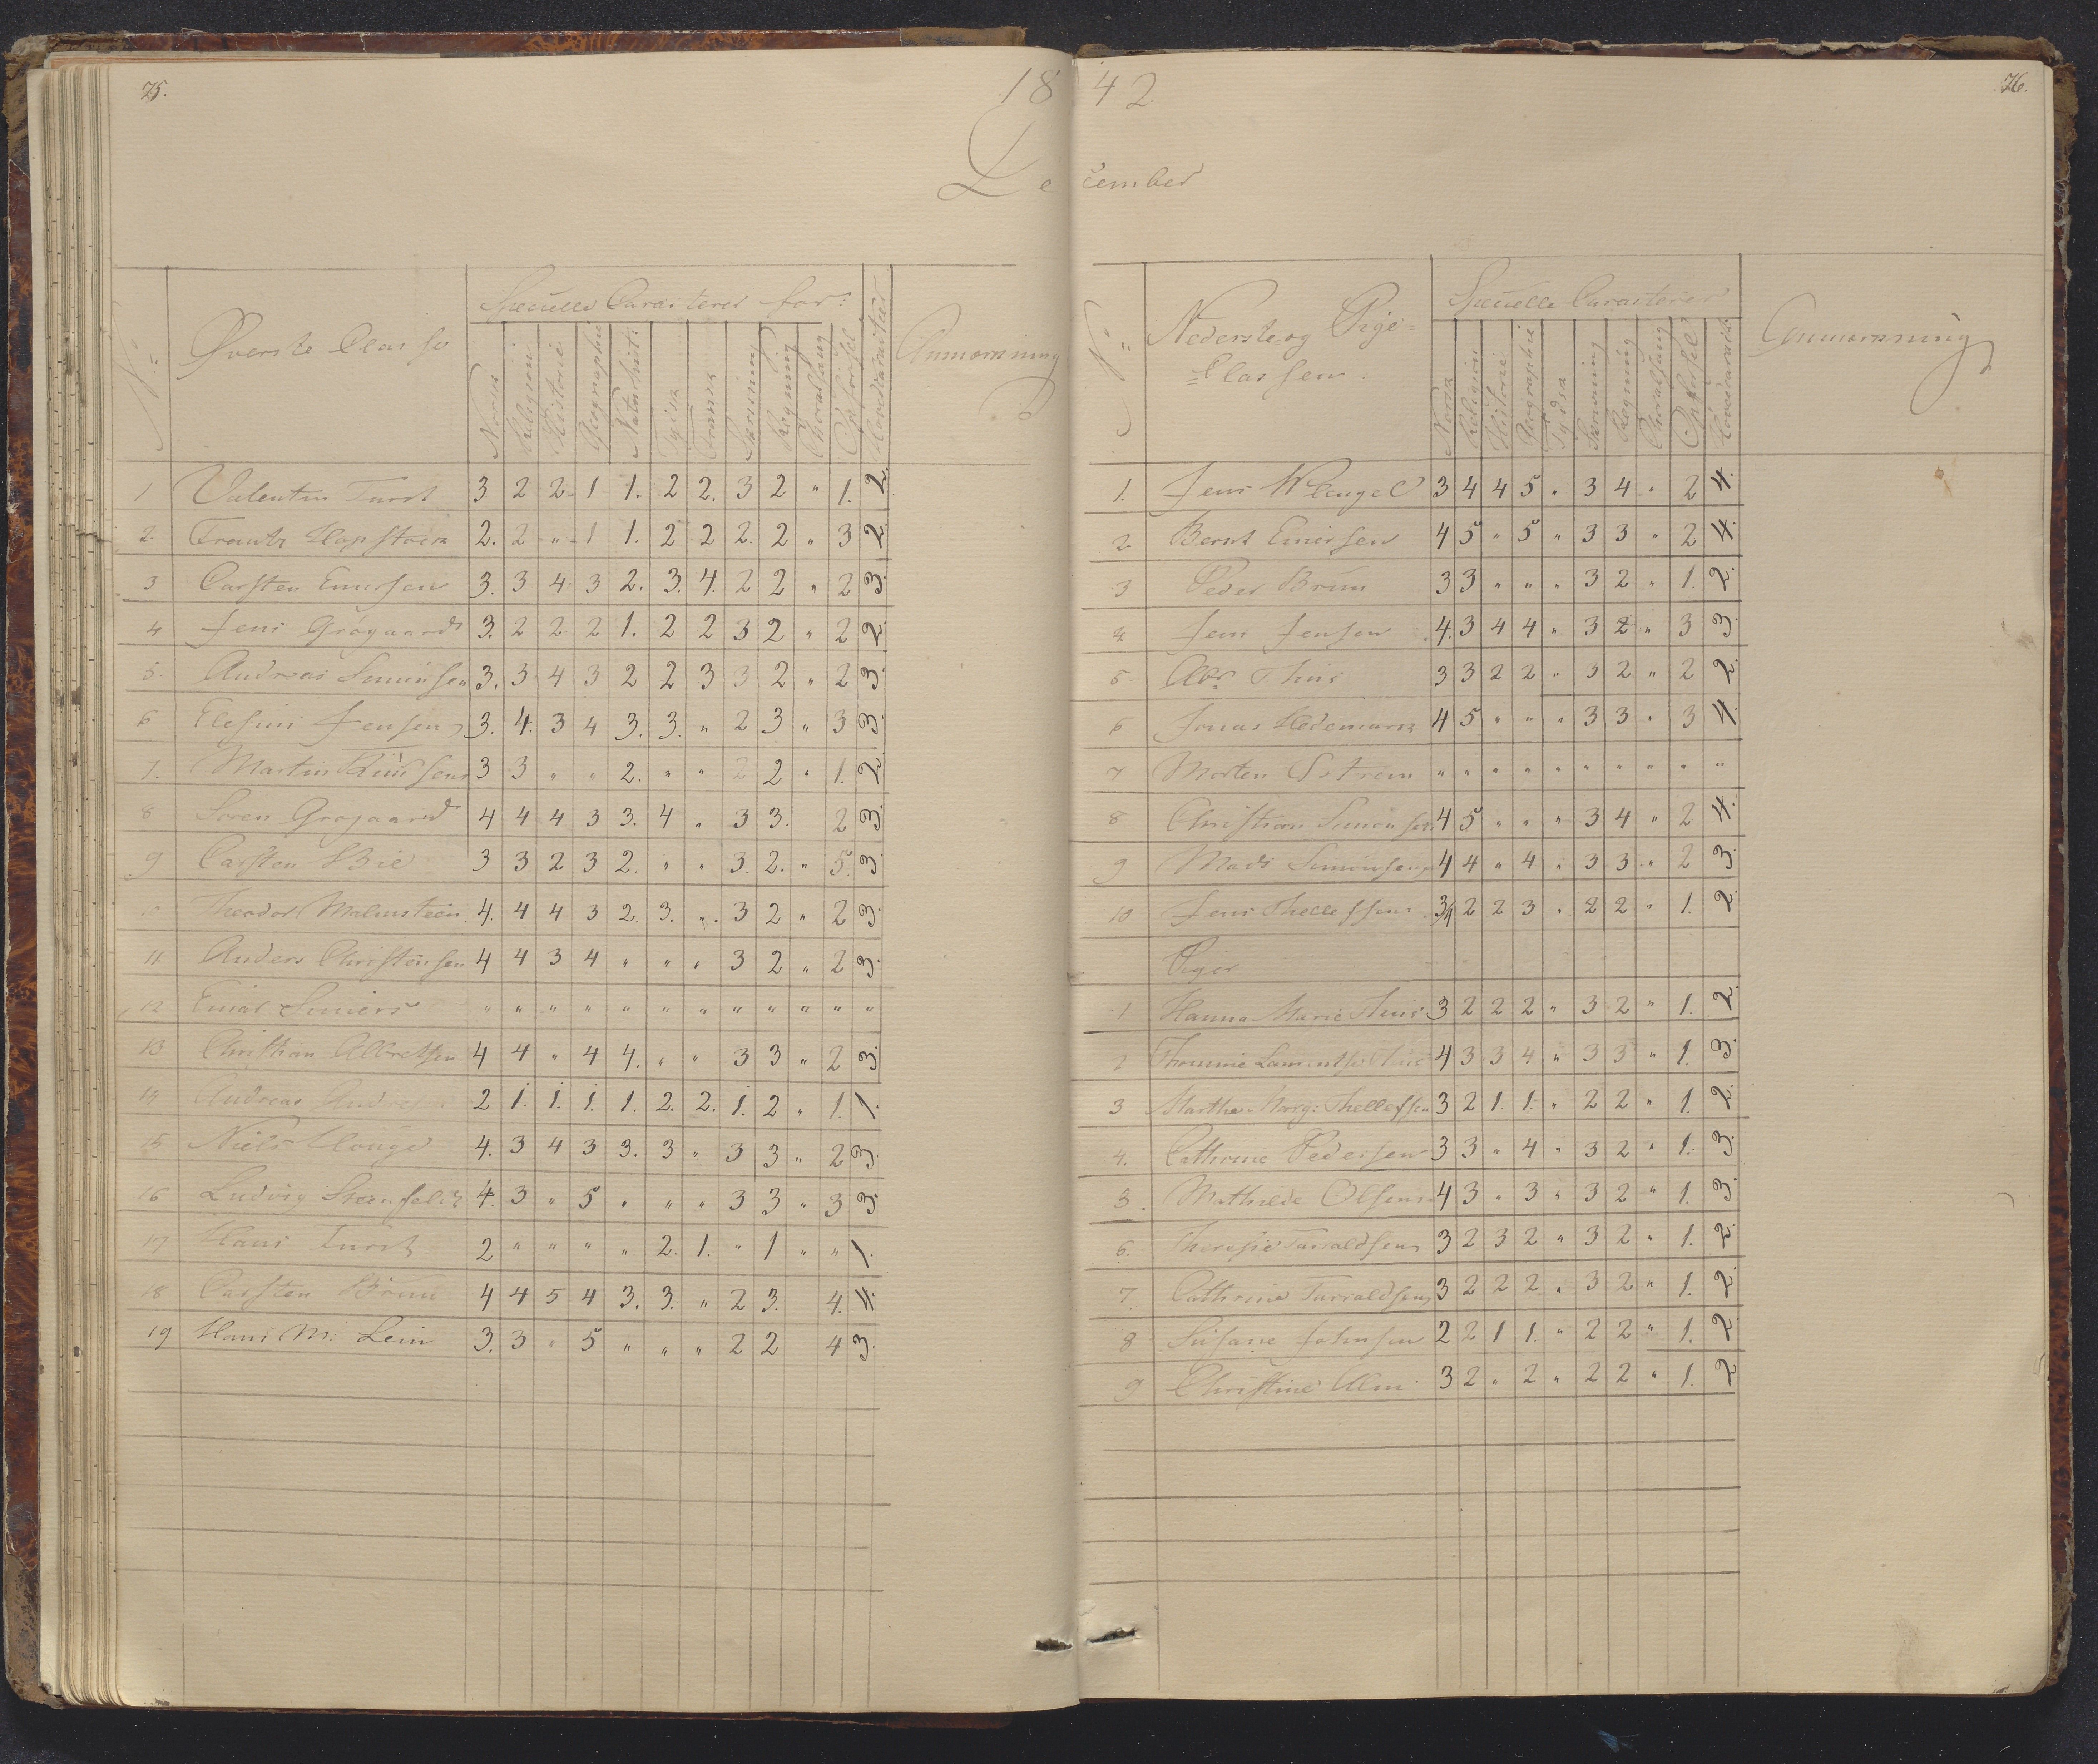 75.
18
De
Øverste Classe
Specielle Caracterer for:
Anmærkning
No
Norsk
Religion
Historie
Geographie
Naturhist:
Tydsk
Fransk
Skrivning
Regning
Choralsang
Opførsel
Hovedcaracteer
1 Valentin Furst 3 2 2 1 1. 2 2. 3 2 " 1. 2.
2. Frantz 2. 2 " 1 1. 2 2 2. 2 " 3 2.
3 Carsten Ennersen 3. 3 4 3 2. 3. 4. 2 2 " 2 3.
4 Jens Grøgaard 3. 2 2 2 1. 2 2 3 2 " 2 2.
5. Andreas Simonsen 3. 3 4 3 2 2 3 3 2 " 2 3.
6 Jensen 3. 4. 3 4 3. 3. " 2 3 " 3 3.
7. Martin 3 3 " " 2. " " 2 2 " 1. 2.
8 Søren Grøgaard 4 4 4 3 3. 4 " 3 3. 2 3.
9 Carsten Bie 3 3 2 3 2. " " 3. 2. " 5. 3.
Theodor Malmsteen 4. 4 4 3 2. 3. " 3 2 " 2 3.
11 Anders Christensen 4 4 3 4 " " " 3 2 " 2 3.
12 Einar " " " " " " " " " " " "
13 Christian Albretsen 4 4 " 4 4. " " 3 3 " 2 3.
14 Andreas 2 1. 1. 1. 1. 2. 2. 1. 2 " 1. 1.
15 Niels Houge 4. 3 4 3 3. 3 " 3 3 " 2 3.
16 Ludvig 4. 3 " 5 " " " 3 3 " 3 3.
17 Hans Furst 2 " " " " 2. 1. " 1 " " 1.
18 Carsten Brun 4 4 5 4 3. 3. " 2 3. 4. 4.
19 Hans M. Lein 3. 3 " 5 " " " 2 2 4 3.
42
76.
cember
Nederste og Pige=
=Classen.
Specielle Caracterer
Anmærkning
No
Norsk
Religion
Historie
Geographie
Tydsk
Skrivning
Regning
Choralsang
Opførsel
Hovedcaract:
1. Jens 3 4 4 5 " 3 4 " 2 4.
2. Bernt Ennersen 4 5 " 5 " 3 3 " 2 4.
3 Peder Brun 3 3 " " " 3 2 " 1. 2.
4 Jens Jensen 4. 3 4 4 " 3 2 " 3 3.
5. Abr Thiis 3 3 2 2 " 3 2 " 2 2.
6 Jonas Hedemark 4 5 " " " 3 3 " 3 4.
7 Morten Strøm " " " " " " " " " "
8 Christian Simonsen 4 5 " " " 3 4 " 2 4.
9 Mads Simonsen 4 4 " 4 " 3 3 " 2 3.
10 Jens Thellefsen 3/4 2 2 3 " 2 2 " 1. 2.
Piger
1 Hanna Marie Thiis 3 2 2 2 " 3 2 " 1. 2.
2 Thomine 4 3 3 4 " 3 3 " 1. 3.
3 Marthe Marg: Thellefsen 3 2 1. 1. " 2 2 " 1. 2.
4. Cathrine Pedersen 3 3 " 4 " 3 2 " 1. 3.
5. Mathilde Olsen 4 3 " 3 " 3 2 " 1. 3.
6. Theresie Tarraldsen 3 2 3 2 " 3 2 " 1. 2.
7. Cathrine Tarraldsen 3 2 2 2 " 3 2 " 1. 2.
8 Susane Johnsen 2 2 1 1. " 2 2 " 1. 2.
9 Christine Alm 3 2 " 2 " 2 2 " 1. 2